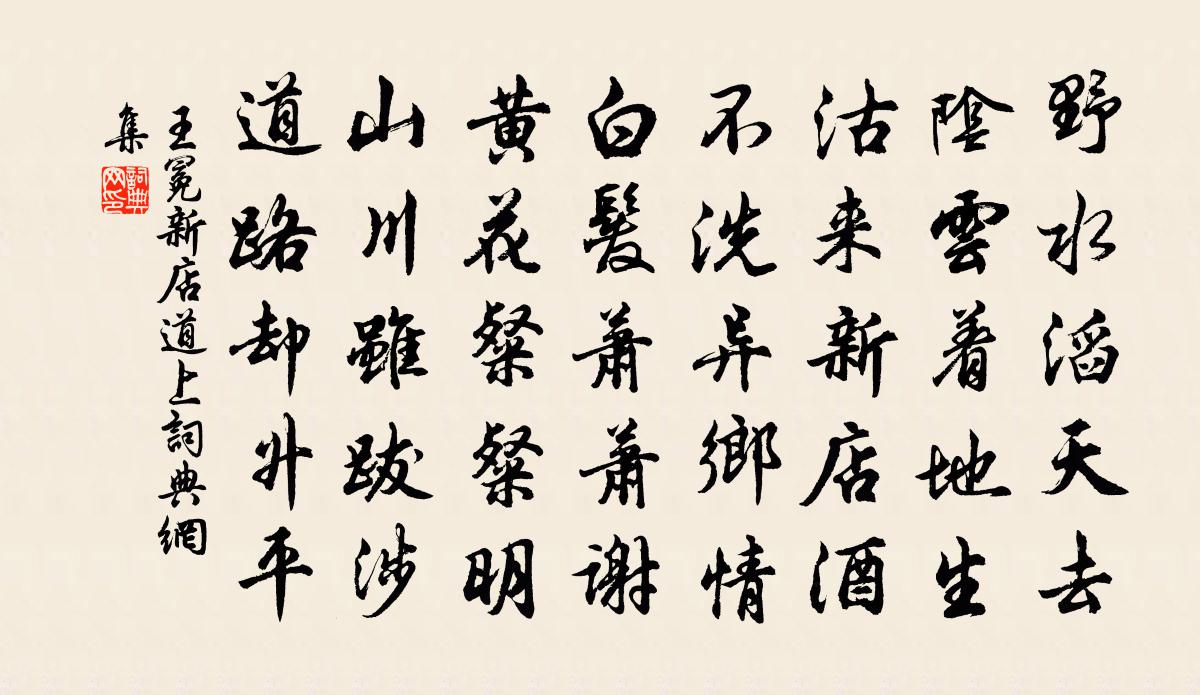 野水滔天去
陰雲着地生
沽来新店酒
不洗异鄉情
白髮蕭蕭谢
黄花粲粲明
山川雖跋涉
道路却升平
王冕新店道上詞典網
集
詞典网印